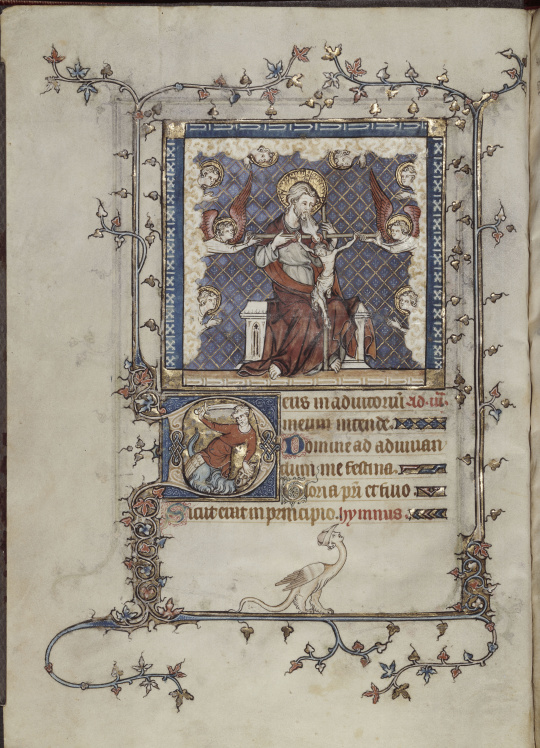 Deus in adiutoriū Ad .iii.
meum intende.
Domine ad adiuuan
dum me festina.
Gloria pri et filio
Sicut erat in principio. hymnus.